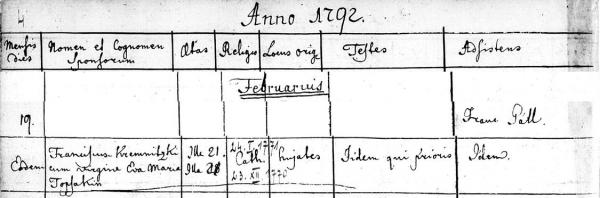 4
Anno 1792.
Mensis dies | Nomen et Cognomen Sponsorum | Ætas | Religio | Locus orig. | Testes | Adsistens
Februarius
19. Franc. Pall.
Eodem | Franciscus Kremnitzki | Ille 21. | 24. I. 1771 Cath. | hujates | Iidem qui prioris | Idem.
cum virgine Eva Maria | Illa 21 | 23. XII 1770